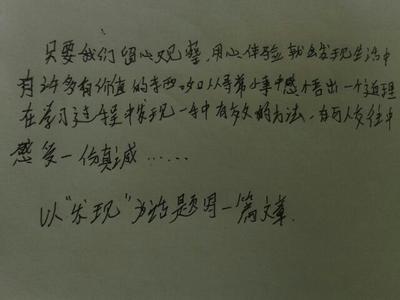 只要我们留心观察,用心体验就会发现生活中
有许多有价值的东西,如从寻常小事中感悟出一个道理
在学习过程中发现一种有效的方法,在与人交往中
感受一份真诚……
以“发现”为话题写一篇文章.